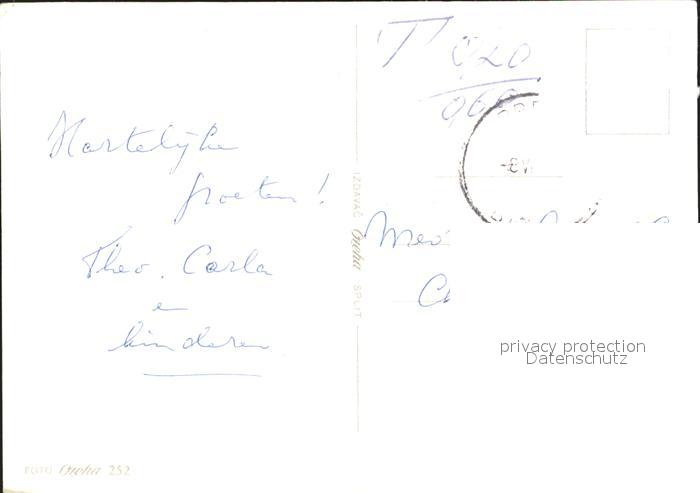 Hartelijke
groeten!
Theo, Carla
en
kinderen
IZDAVAČ SPLIT
T 0,20
privacy protection
Datenschutz
FOTO 252